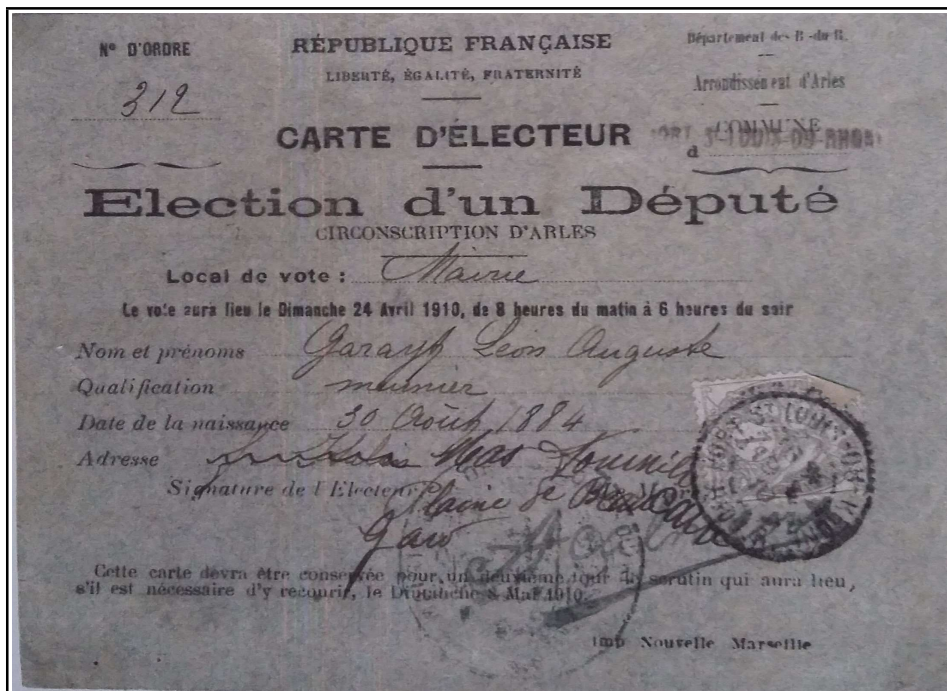 N° D'ORDRE
312
RÉPUBLIQUE FRANÇAISE
LIBERTÉ, ÉGALITÉ, FRATERNITÉ
CARTE D'ÉLECTEUR
Département des B-du-R.
Arrondissement d'Arles
COMMUNE
d PORT-ST-LOUIS-DU-RHONE
Election d'un Député
CIRCONSCRIPTION D'ARLES
Local de vote : Mairie
Le vote aura lieu le Dimanche 24 Avril 1910, de 8 heures du matin à 6 heures du soir
Nom et prénoms Léon Auguste
Qualification meunier
Date de la naissance 30 Août 1884
Adresse Mas
Signature de l'Electeur Plaine de
Gard
Cette carte devra être conservée pour un deuxième tour de scrutin qui aura lieu,
s'il est nécessaire d'y recourir, le Dimanche 8 Mai 1910.
Imp Nouvelle Marseille